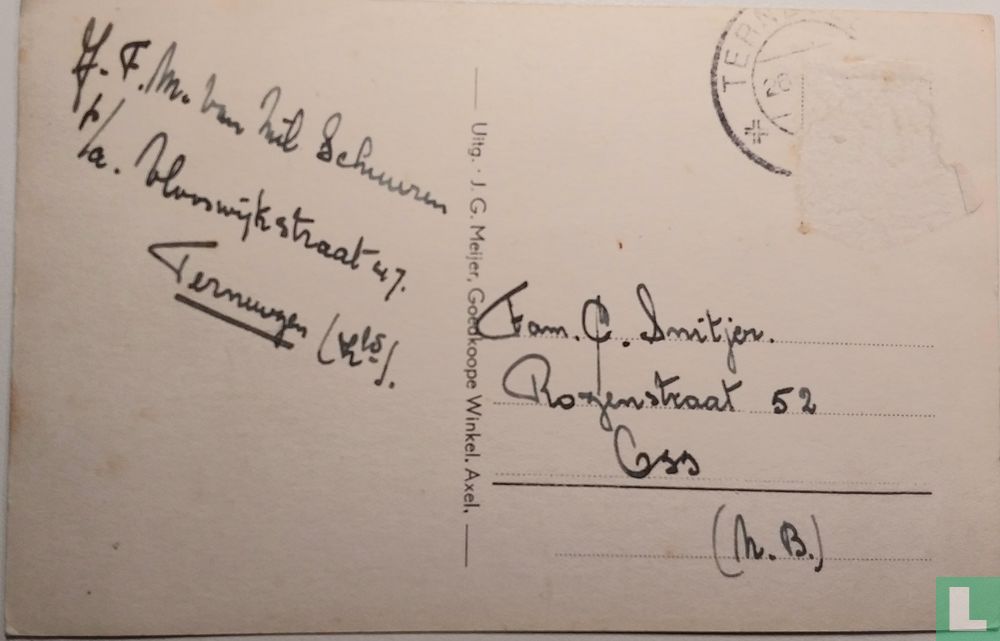 J. F. M. van Nil Schuuren
p/a. Vlooswijkstraat 47.
Terneuzen (Zld).
— Uitg. J. G. Meijer, Goedkoope Winkel, Axel, —
TERN
26
Fam. C. Smitjer.
Rozenstraat 52
Oss
(N. B.)
L